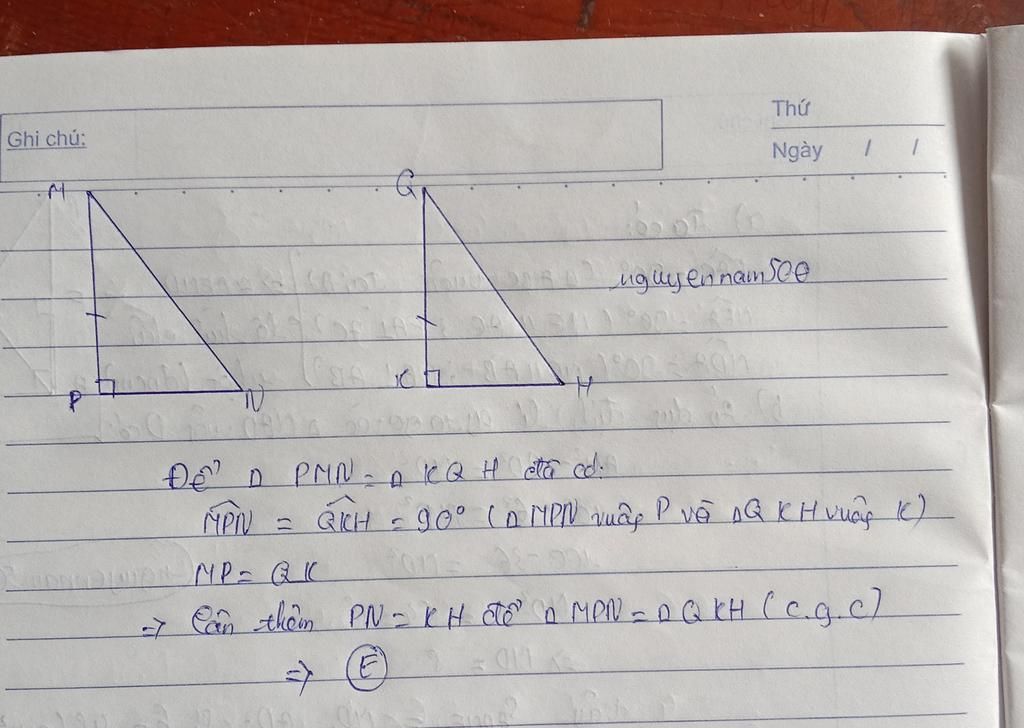 Ghi chú:
Thứ
Ngày / /
M
Q
nguyennam50θ
P
N
K
H
Để Δ PMN = Δ KQH đã có:
MPN = QKH = 90° (Δ MPN vuông P và Δ QKH vuông K)
MP = QK
=> Cần thêm PN = KH để Δ MPN = Δ QKH (c.g.c)
=> E